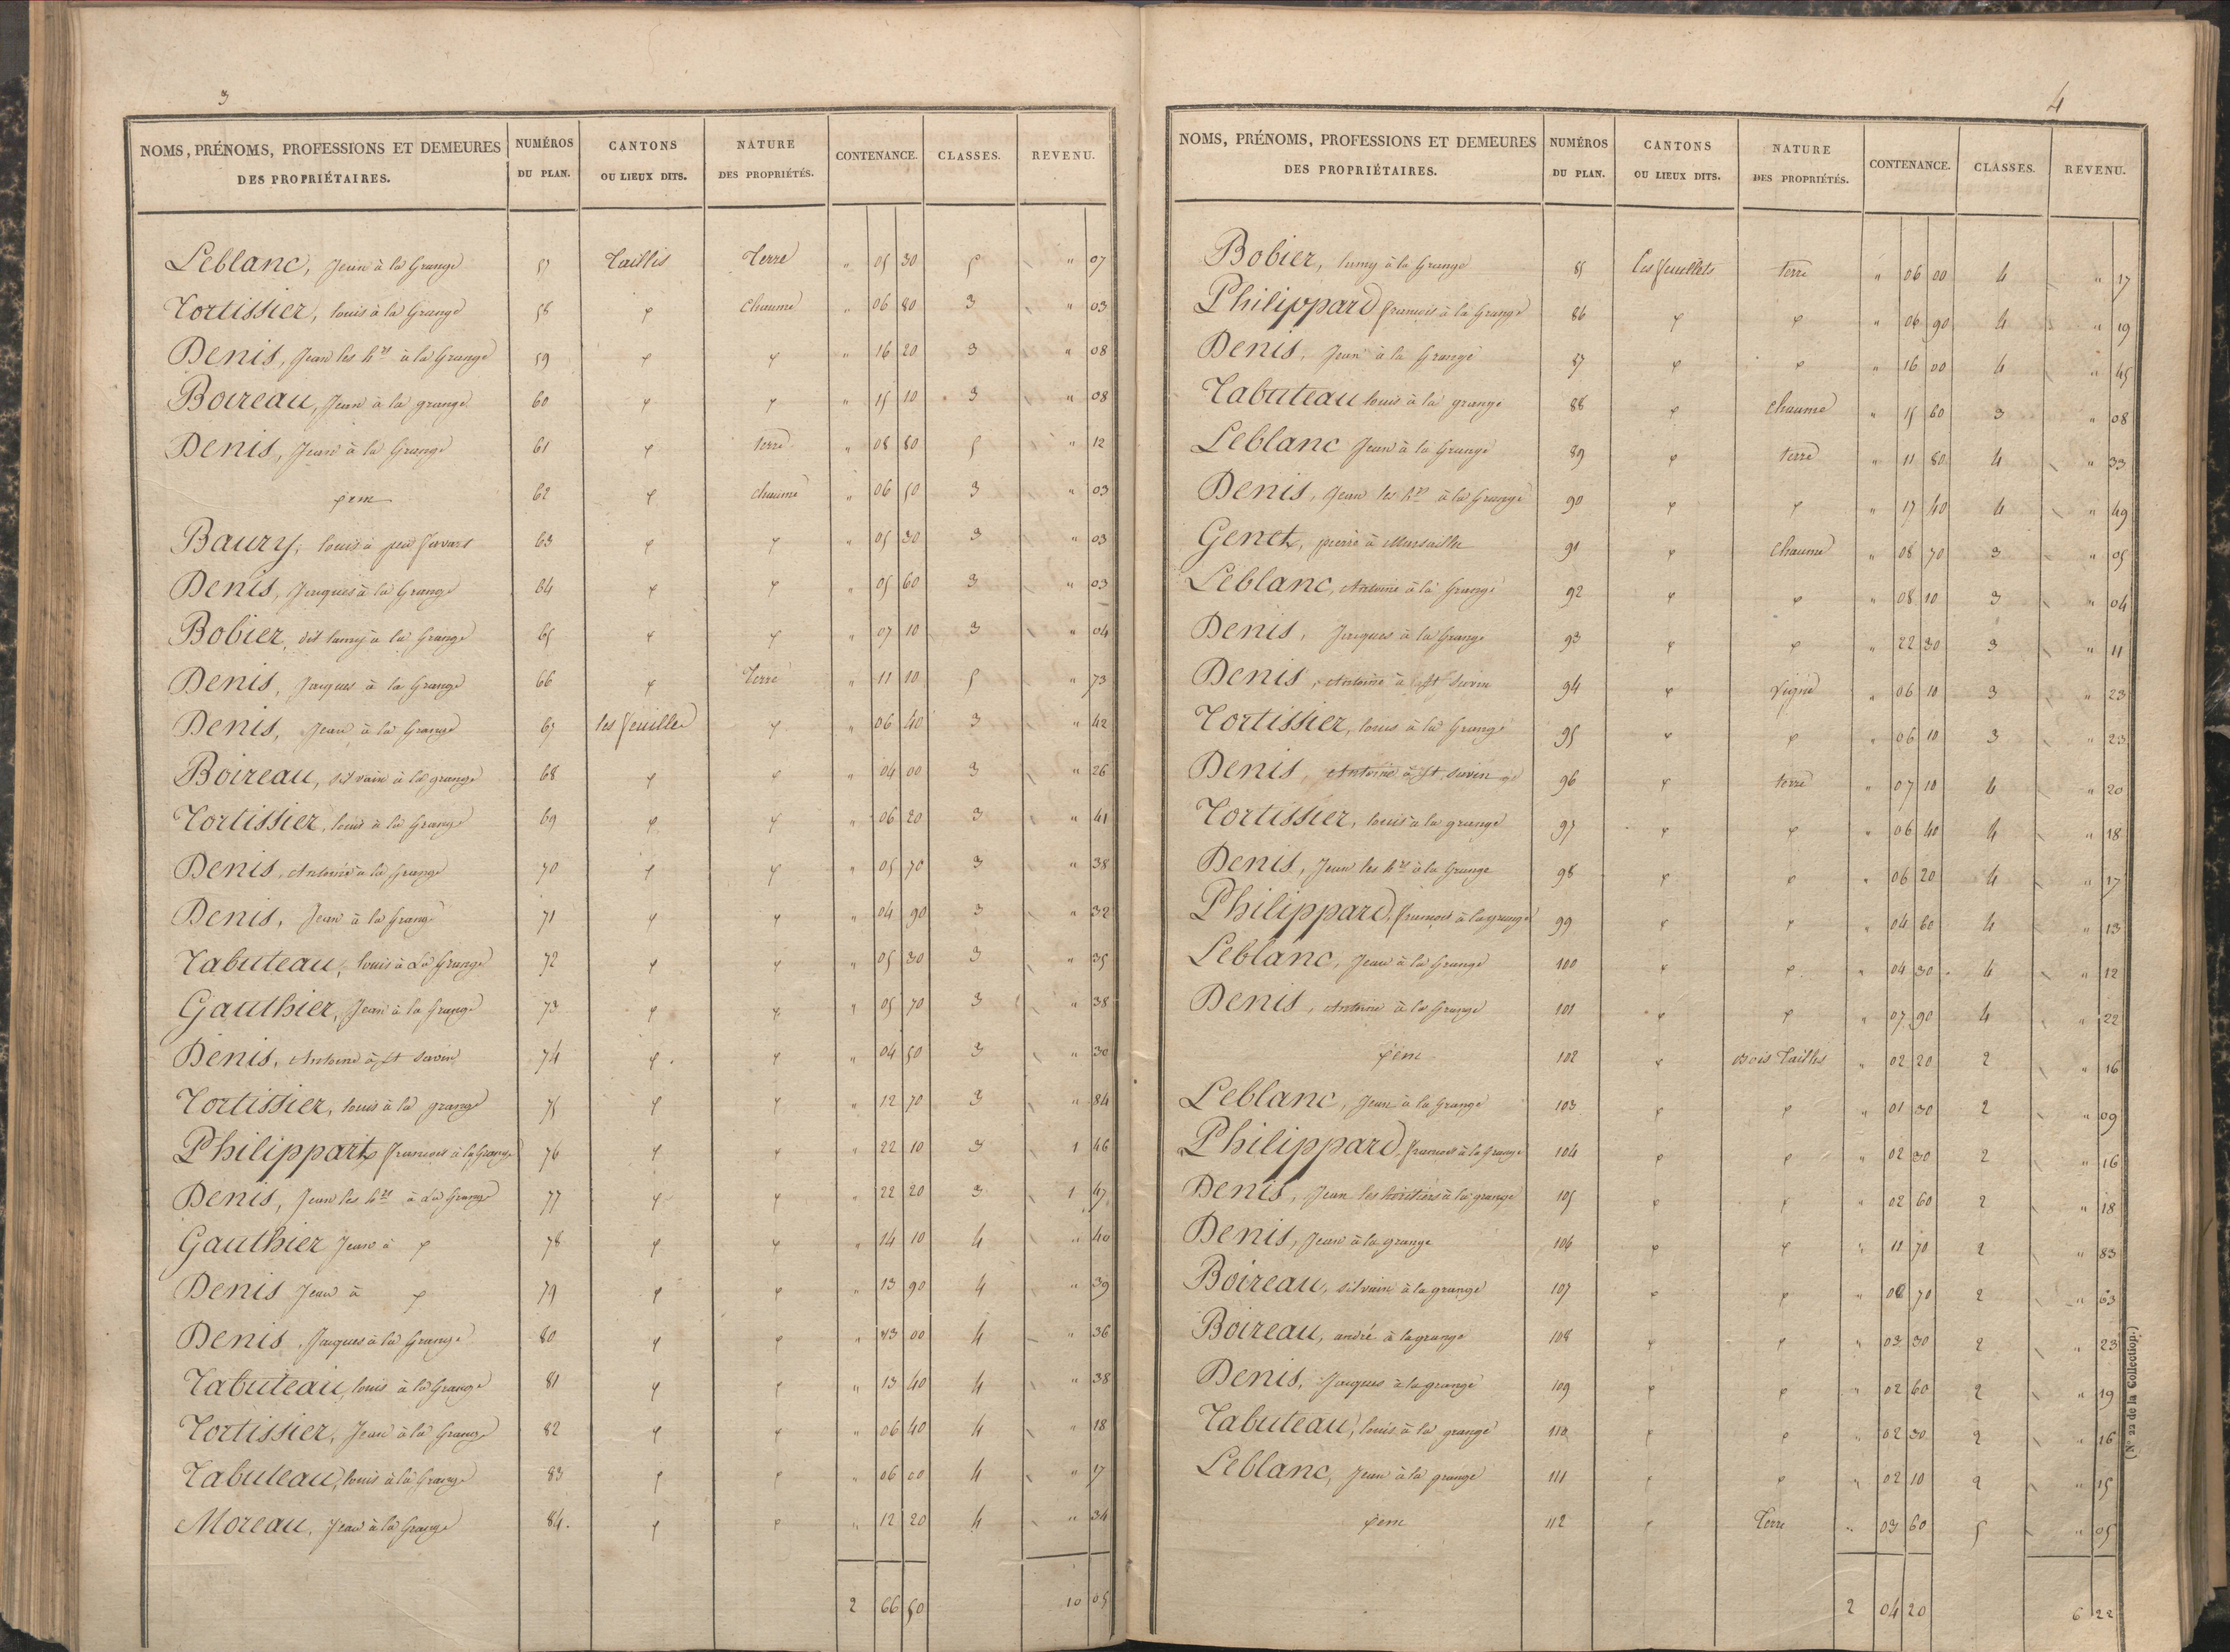 3
NOMS, PRÉNOMS, PROFESSIONS ET DEMEURES DES PROPRIÉTAIRES. NUMÉROS DU PLAN. CANTONS OU LIEUX DITS. NATURE DES PROPRIÉTÉS. CONTENANCE. CLASSES. REVENU.
Leblanc, Jean à la Grange 57 Taillis Terre " 05 30 5 " 07
Tortissier, louis à la Grange 58 φ Chaume " 06 80 3 " 03
Denis, Jean les hrs à la Grange 59 φ φ " 16 20 3 " 08
Boireau, Jean à la grange 60 φ φ " 15 10 3 " 08
Denis, Jean à la Grange 61 φ terre " 08 80 5 " 12
φem 62 φ chaume " 06 50 3 " 03
Baury, louis à 63 φ φ " 05 30 3 " 03
Denis, Jacques à la Grange 64 φ φ " 05 60 3 " 03
Bobier, dit lamy à la Grange 65 φ φ " 07 10 3 " 04
Denis, Jacques à la Grange 66 φ Terre " 11 10 5 " 73
Denis, Jean à la Grange 67 les feuilles φ " 06 40 3 " 42
Boireau, silvain à la grange 68 φ φ " 04 00 3 " 26
Tortissier, louis à la Grange 69 φ φ " 06 20 3 " 41
Denis, Antoine à la Grange 70 φ φ " 05 70 3 " 38
Denis, Jean à la Grange 71 φ φ " 04 90 3 " 32
Tabuteau, louis à la Grange 72 φ φ " 05 30 3 " 35
Gauthier, Jean à la Grange 73 φ φ " 05 70 3 " 38
Denis, Antoine à St Savin 74 φ φ " 04 50 3 " 30
Tortissier, louis à la grange 75 φ φ " 12 70 3 " 84
Philippart, francois à la Grange 76 φ φ " 22 10 3 1 46
Denis, Jean les hrs à la Grange 77 φ φ " 22 20 3 1 47
Gauthier Jean à φ 78 φ φ " 14 10 4 " 40
Denis Jean à φ 79 φ φ " 13 90 4 " 39
Denis, Jacques à la Grange 80 φ φ " 13 00 4 " 36
Tabuteau, louis à la Grange 81 φ φ " 13 40 4 " 38
Tortissier, Jean à la Grange 82 φ φ " 06 40 4 " 18
Tabuteau, louis à la Grange 83 φ φ " 06 00 4 " 17
Moreau, Jean à la Grange 84. φ φ " 12 20 4 " 34
2 66 50 10 05
4
NOMS, PRÉNOMS, PROFESSIONS ET DEMEURES DES PROPRIÉTAIRES. NUMÉROS DU PLAN. CANTONS OU LIEUX DITS. NATURE DES PROPRIÉTÉS. CONTENANCE. CLASSES. REVENU.
Bobier, lamy à la Grange 85 les feuillets terre " 06 00 4 " 17
Philippard francois à la Grange 86 φ φ " 06 90 4 " 19
Denis, Jean à la Grange 87 φ φ " 16 00 4 " 45
Tabuteau louis à la grange 88 φ chaume " 15 60 3 " 08
Leblanc Jean à la Grange 89 φ terre " 11 80 4 " 33
Denis, Jean les hrs à la Grange 90 φ φ " 17 40 4 " 49
Genet, pierre à Marsaille 91 φ Chaume " 08 70 3 " 05
Leblanc, Antoine à la Grange 92 φ φ " 08 10 3 " 04
Denis, Jacques à la Grange 93 φ φ " 22 30 3 " 11
Denis, Antoine à St Savin 94 φ Vigne " 06 10 3 " 23
Tortissier, louis à la Grange 95 φ φ " 06 10 3 " 23
Denis, Antoine à St savin 96 φ terre " 07 10 4 " 20
Tortissier, louis à la grange 97 φ φ " 06 40 4 " 18
Denis, Jean les hrs à la Grange 98 φ φ " 06 20 4 " 17
Philippard, francois à la grange 99 φ φ " 04 60 4 " 13
Leblanc, Jean à la Grange 100 φ φ " 04 30 4 " 12
Denis, Antoine à la Grange 101 φ φ " 07 90 4 " 22
φem 102 φ Bois Taillis " 02 20 2 " 16
Leblanc, Jean à la Grange 103 φ φ " 01 30 2 " 09
Philippard, francois à la Grange 104 φ φ " 02 30 2 " 16
Denis, Jean les héritiers à la grange 105 φ φ " 02 60 2 " 18
Denis, Jean à la grange 106 φ φ " 11 70 2 " 83
Boireau, silvain à la grange 107 φ φ " 08 70 2 " 63
Boireau, andré à la grange 108 φ φ " 03 30 2 " 23
Denis, Jacques à la grange 109 φ φ " 02 60 2 " 19
Tabuteau, louis à la grange 110 φ φ " 02 30 2 " 16
Leblanc, Jean à la grange 111 φ φ " 02 10 2 " 15
φem 112 φ Terre " 03 60 5 " 05
2 04 20 6 22
(N° 22 de la Collection.)